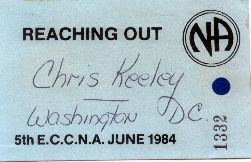 REACHING OUT
NA
Chris Keeley
Washington D.C.
5th E.C.C.N.A. JUNE 1984
1332